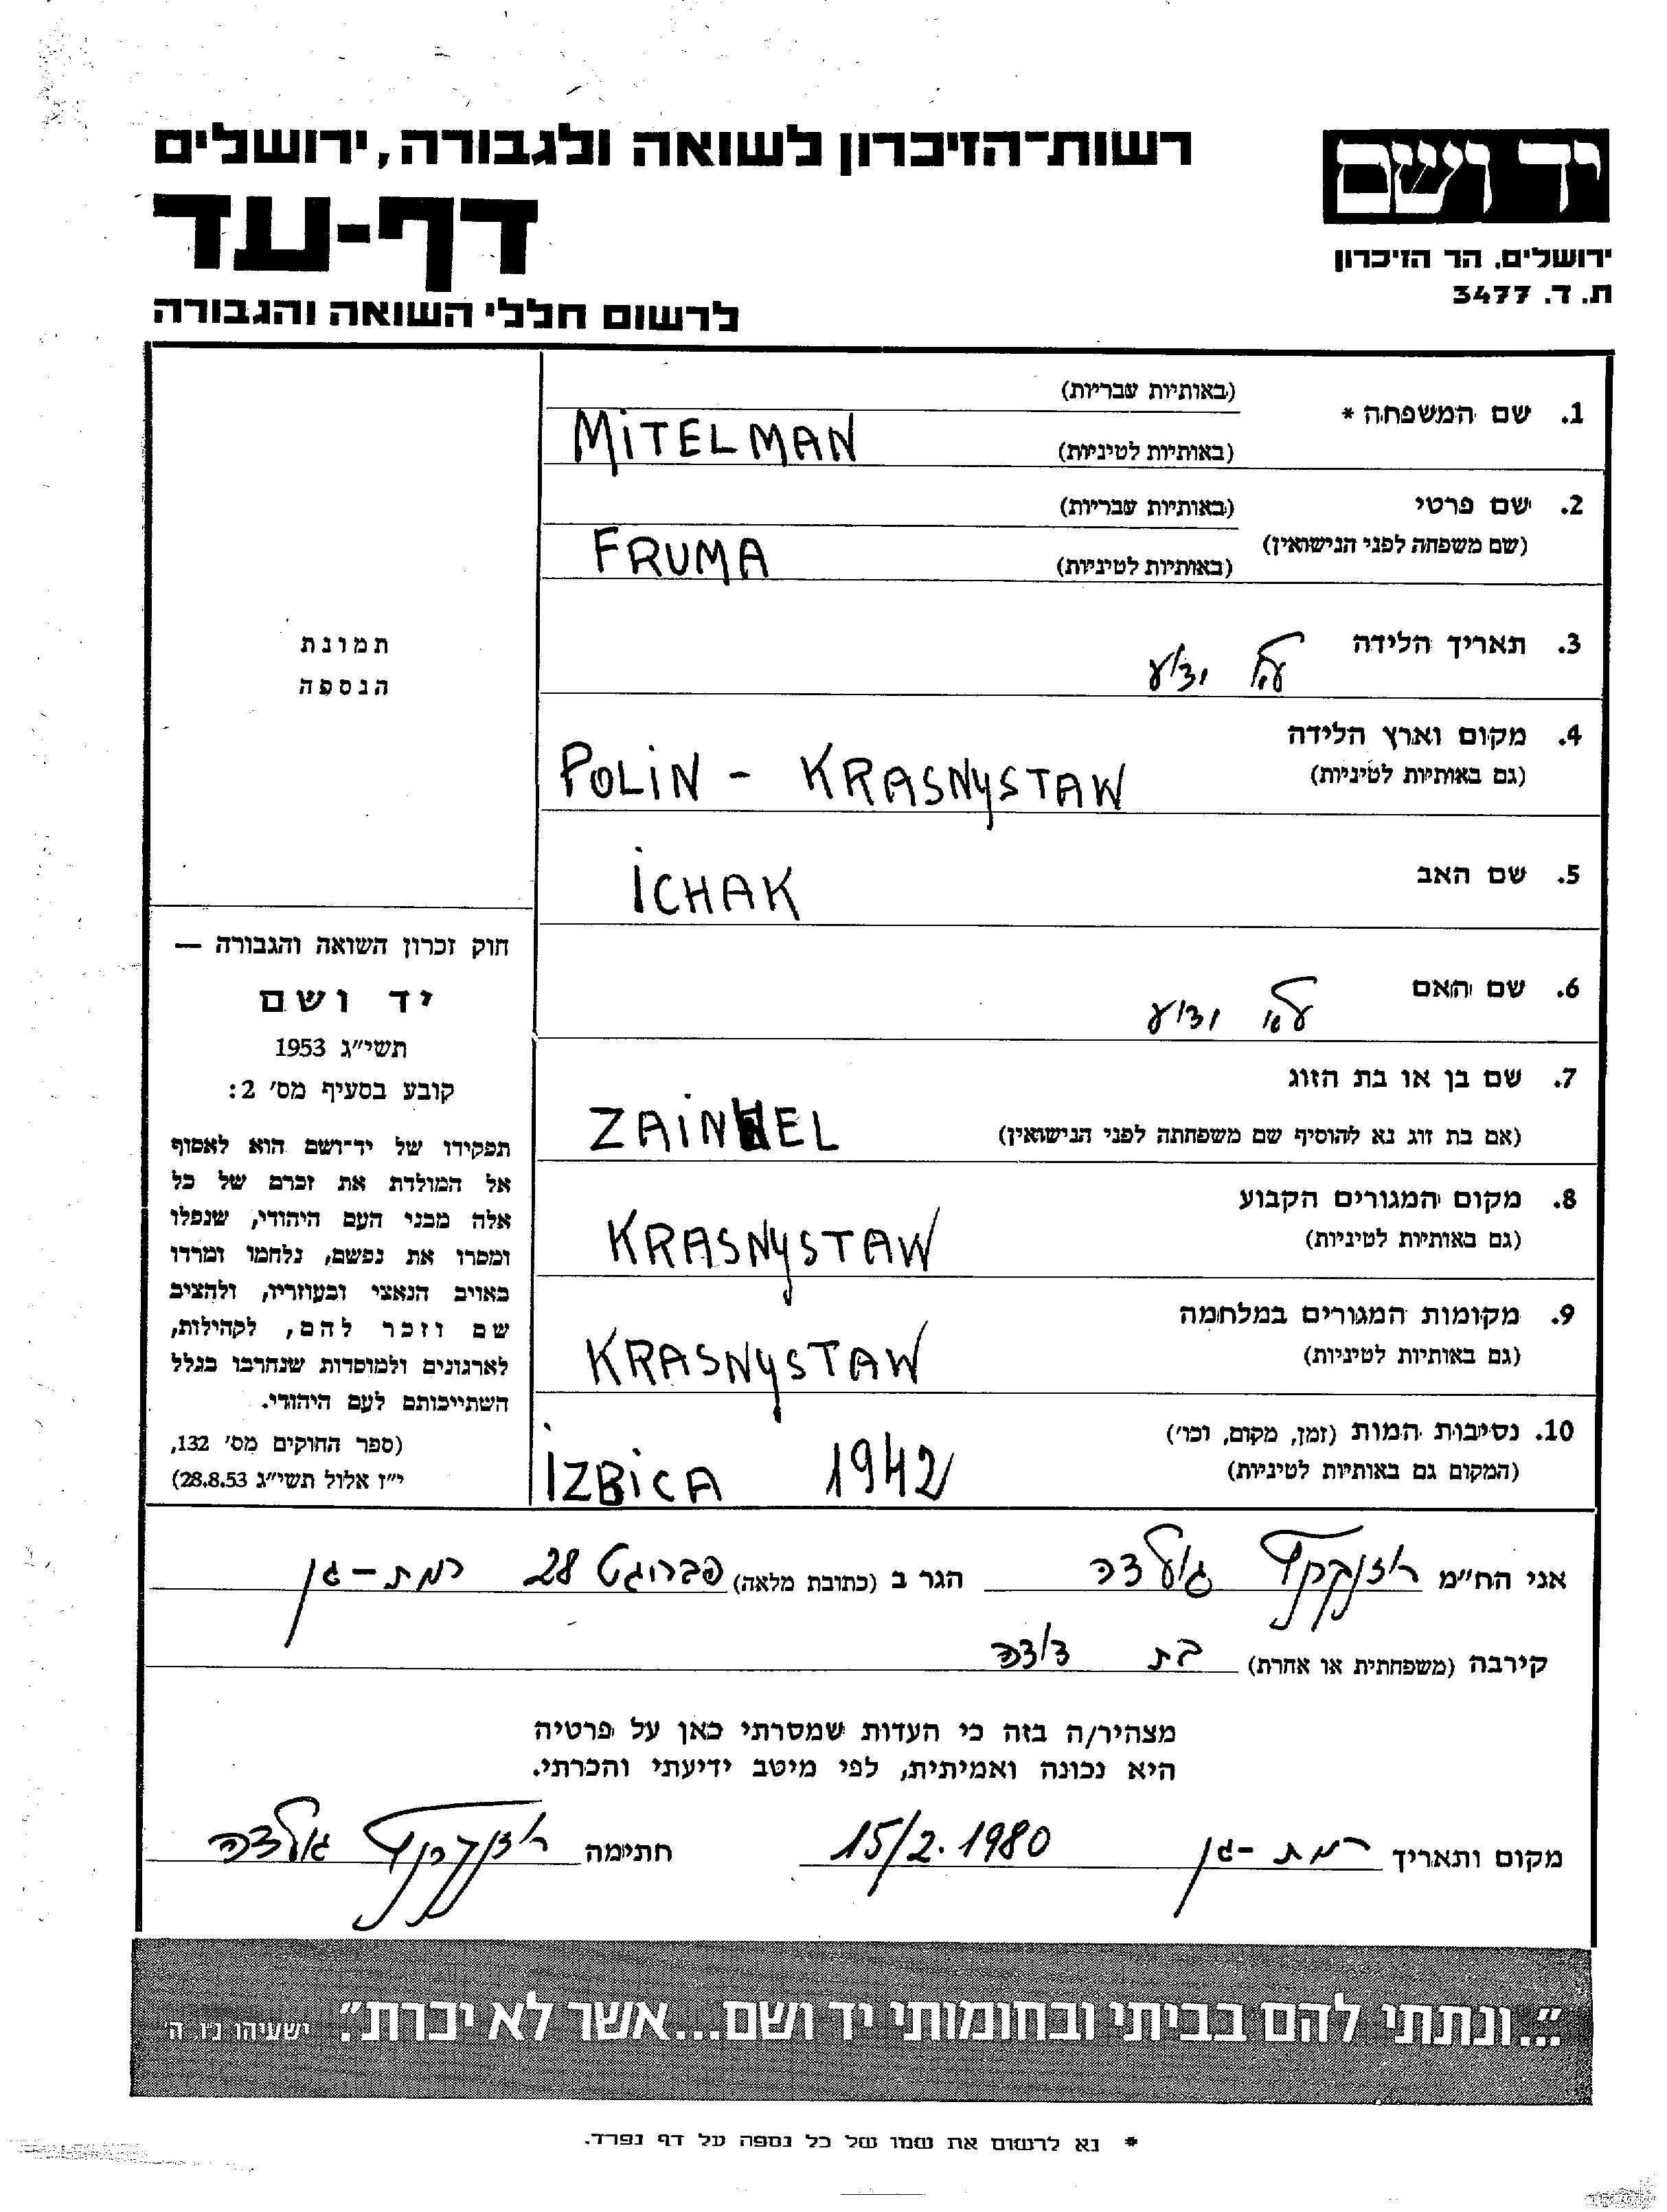 יד ושם
רשות־הזיכרון לשואה ולגבורה, ירושלים
דף-עד
ירושלים, הר הזיכרון
ת. ד. 3477
לרשום חללי השואה והגבורה
1. שם המשפחה * (באותיות עבריות)
(באותיות לטיניות) MiTELMAN
2. שם פרטי (באותיות עבריות)
(שם משפחה לפני הנישואין) (באותיות לטיניות) FRUMA
3. תאריך הלידה לא ידוע
תמונת
הנספה
4. מקום וארץ הלידה
(גם באותיות לטיניות) POLiN - KRASNYSTAW
5. שם האב iCHAK
6. שם האם לא ידוע
7. שם בן או בת הזוג
(אם בת זוג נא להוסיף שם משפחתה לפני הנישואין)
8. מקום המגורים הקבוע
(גם באותיות לטיניות) KRASNYSTAW
9. מקומות המגורים במלחמה
(גם באותיות לטיניות) KRASNYSTAW
10. נסיבות המות (זמן, מקום, וכו')
(המקום גם באותיות לטיניות) iZBiCA 1942
חוק זכרון השואה והגבורה —
יד ושם
תשי״ג 1953
קובע בסעיף מס׳ 2:
תפקידו של יד־ושם הוא לאסוף
אל המולדת את זכרם של כל
אלה מבני העם היהודי, שנפלו
ומסרו את נפשם, נלחמו ומרדו
באויב הנאצי ובעוזריו, ולהציב
שם וזכר להם, לקהילות,
לארגונים ולמוסדות שנחרבו בגלל
השתייכותם לעם היהודי.
(ספר החוקים מס׳ 132,
י״ז אלול תשי״ג 28.8.53)
אני הח״מ גולדה הגר ב (כתובת מלאה) 28 רמת-גן
קירבה (משפחתית או אחרת) בת דודה
מצהיר/ה בזה כי העדות שמסרתי כאן על פרטיה
היא נכונה ואמיתית, לפי מיטב ידיעתי והכרתי.
מקום ותאריך רמת-גן 15/2.1980 חתימה גולדה
״...ונתתי להם בביתי ובחומותי יד ושם...אשר לא יכרת״. ישעיהו נ״ו, ה׳
* נא לרשום את שמו של כל נספה על דף נפרד.